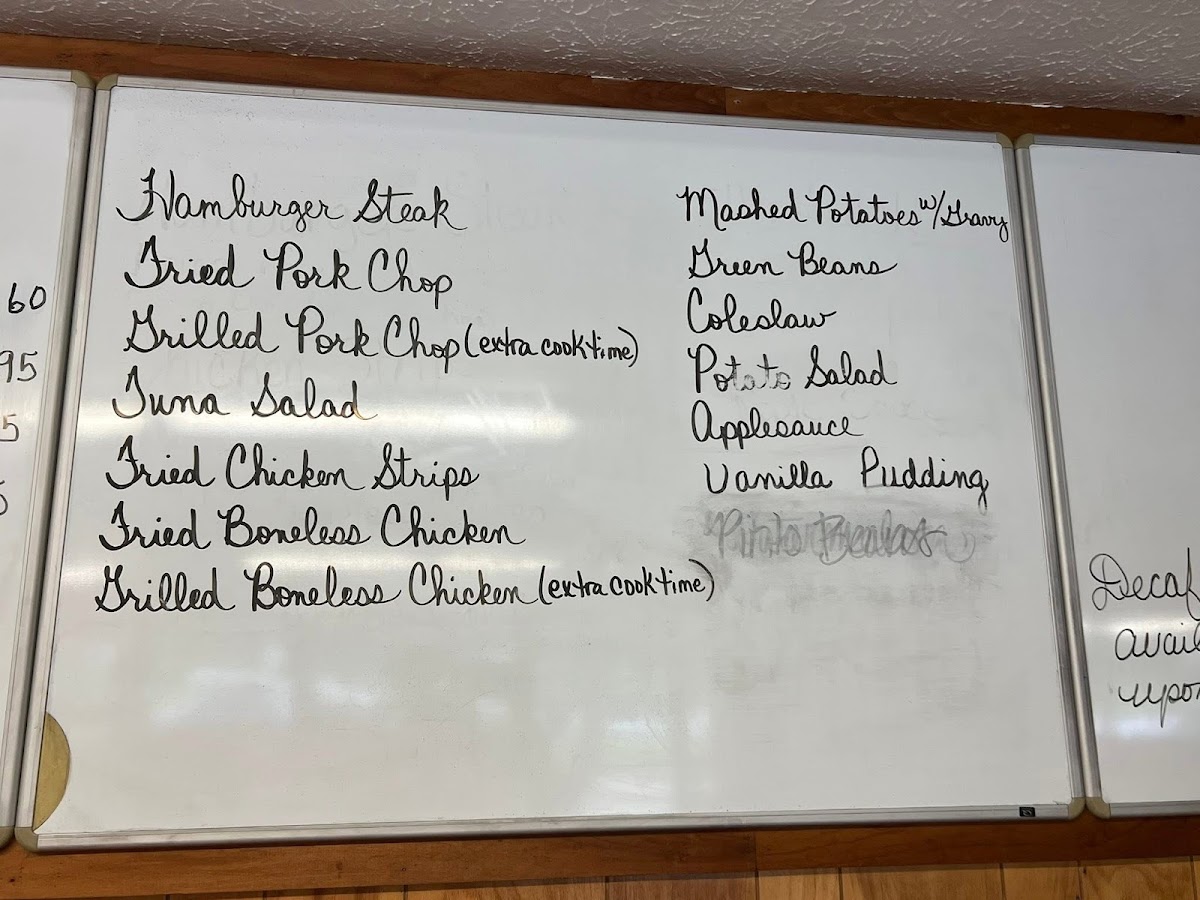 60
95
5
5
Hamburger Steak
Fried Pork Chop
Grilled Pork Chop (extra cook time)
Tuna Salad
Fried Chicken Strips
Fried Boneless Chicken
Grilled Boneless Chicken (extra cook time)
Mashed Potatoes w/ Gravy
Green Beans
Coleslaw
Potato Salad
Applesauce
Vanilla Pudding
Decaf
avail
upon